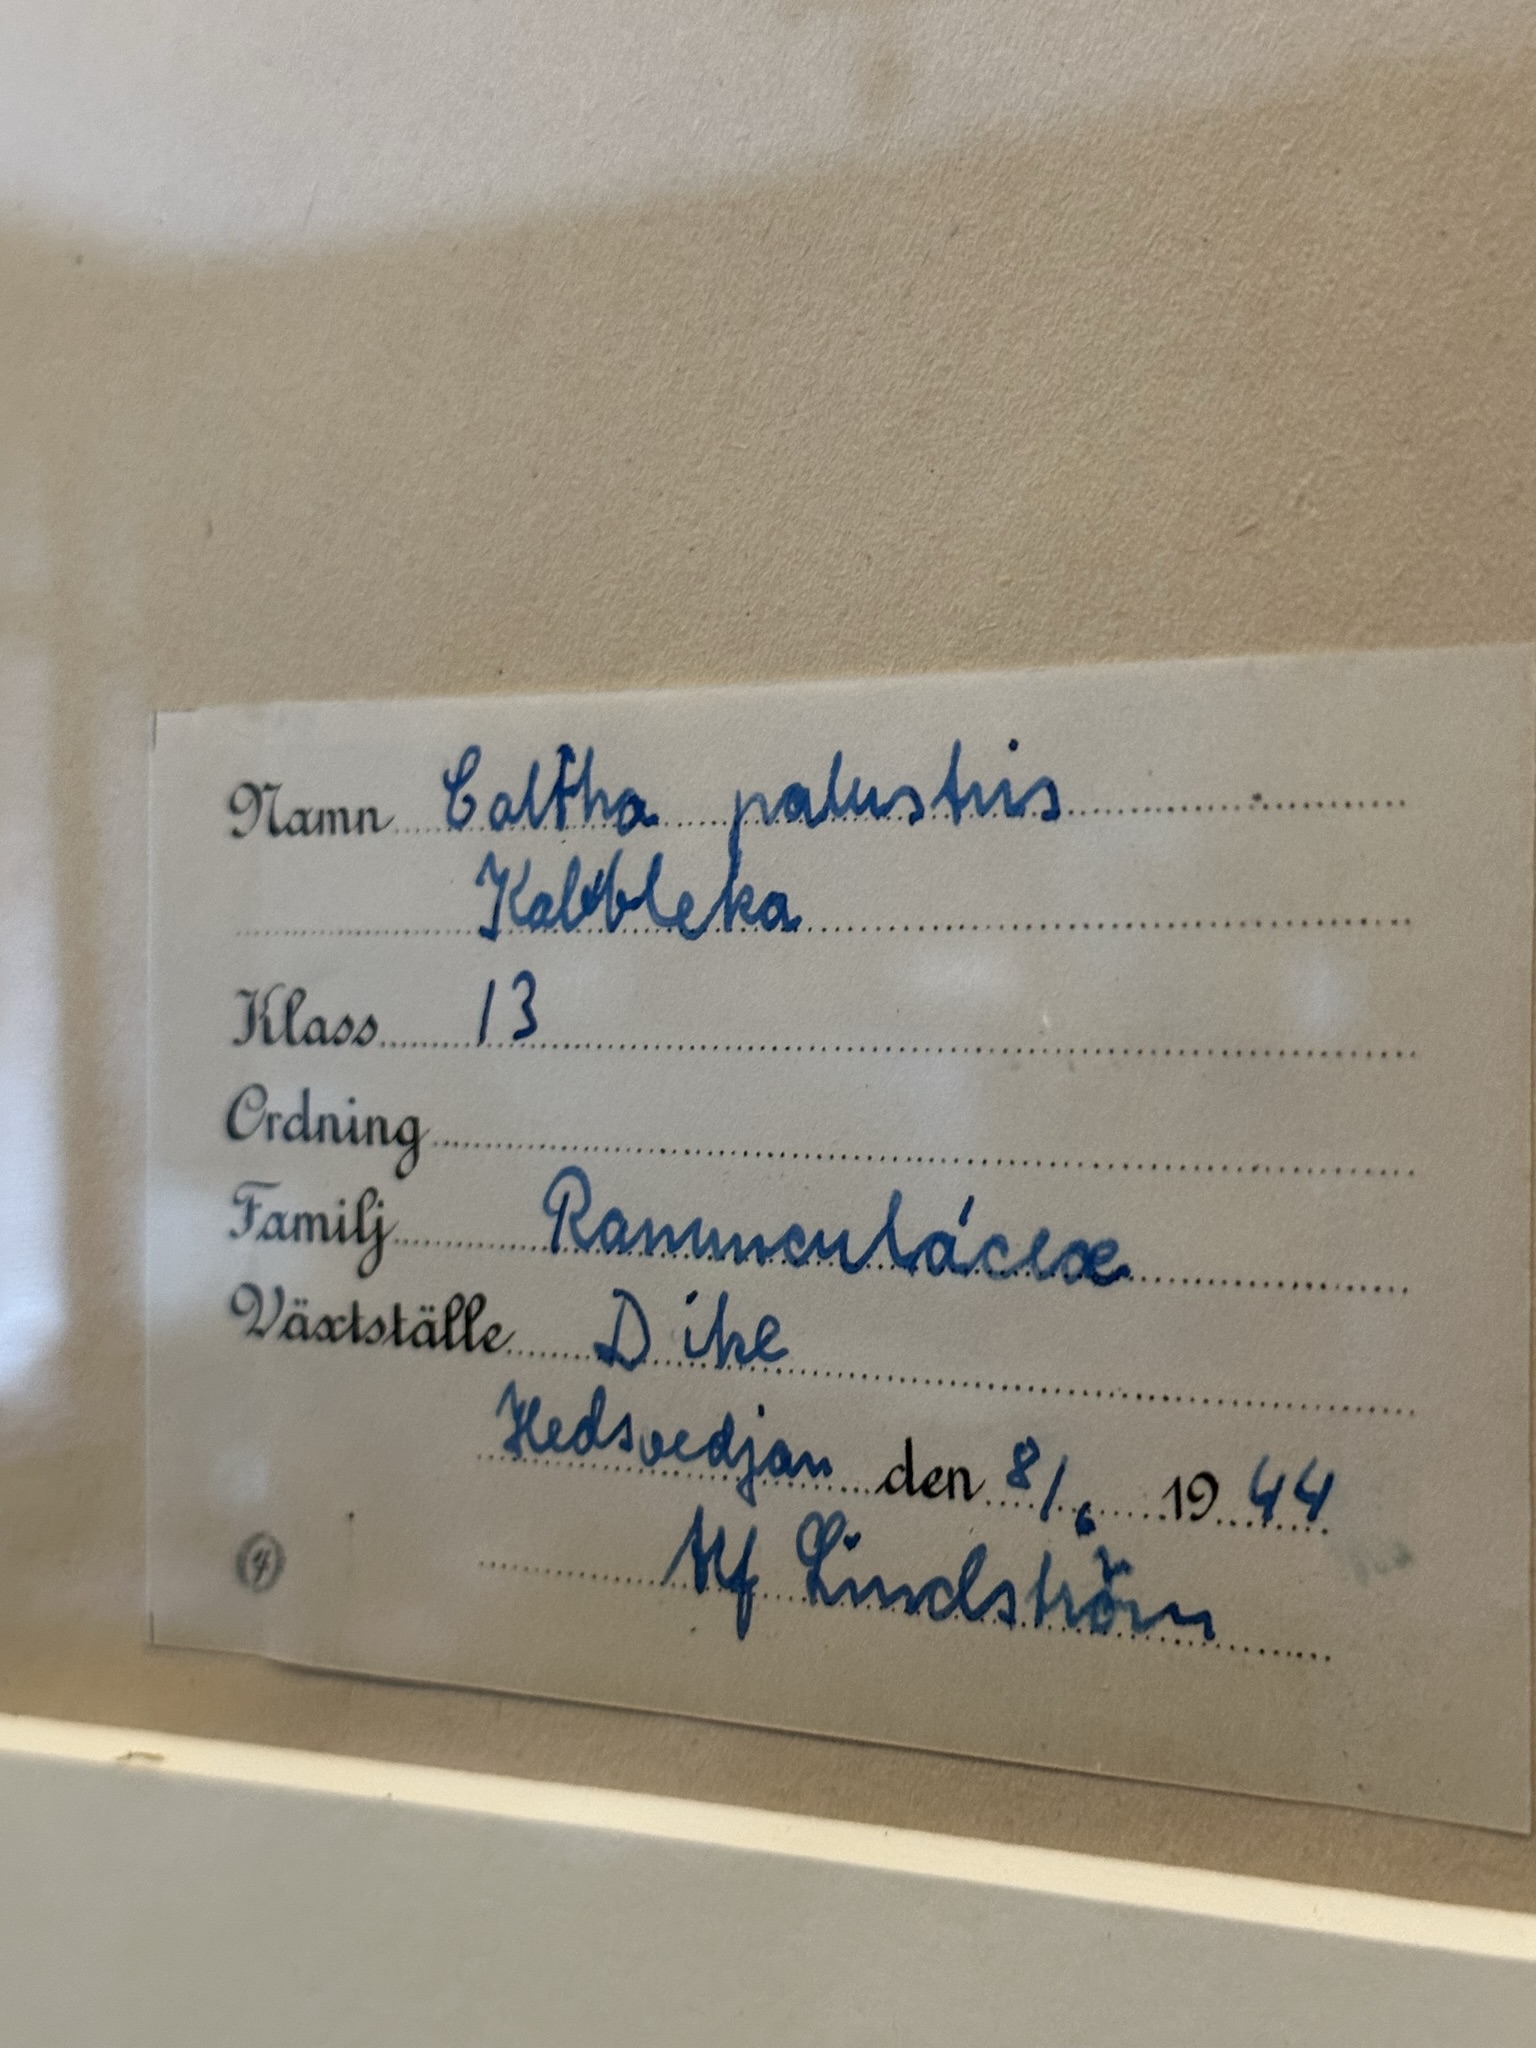 Namn Caltha palustris
Kabbleka
Klass 13
Ordning
Familj Ranunculáceæ
Växtställe Dike
Hedsvedjan den 8/6 1944
4 Alf Lindström